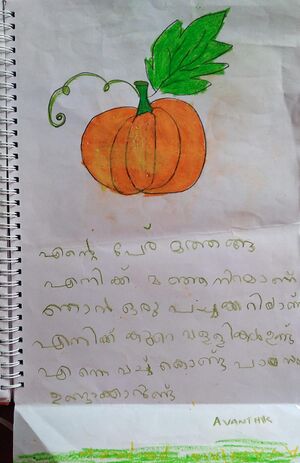 എന്റെ പേര് മത്തങ്ങ
എനിക്ക് മഞ്ഞനിറമാണ്
ഞാൻ ഒരു പച്ചക്കറിയാണ്
എനിക്ക് കുറെ വള്ളികൾ ഉണ്ട്
എന്നെ വച്ച് കൊണ്ടു പായസം
ഉണ്ടാക്കാറുണ്ട്
AVANTHIK